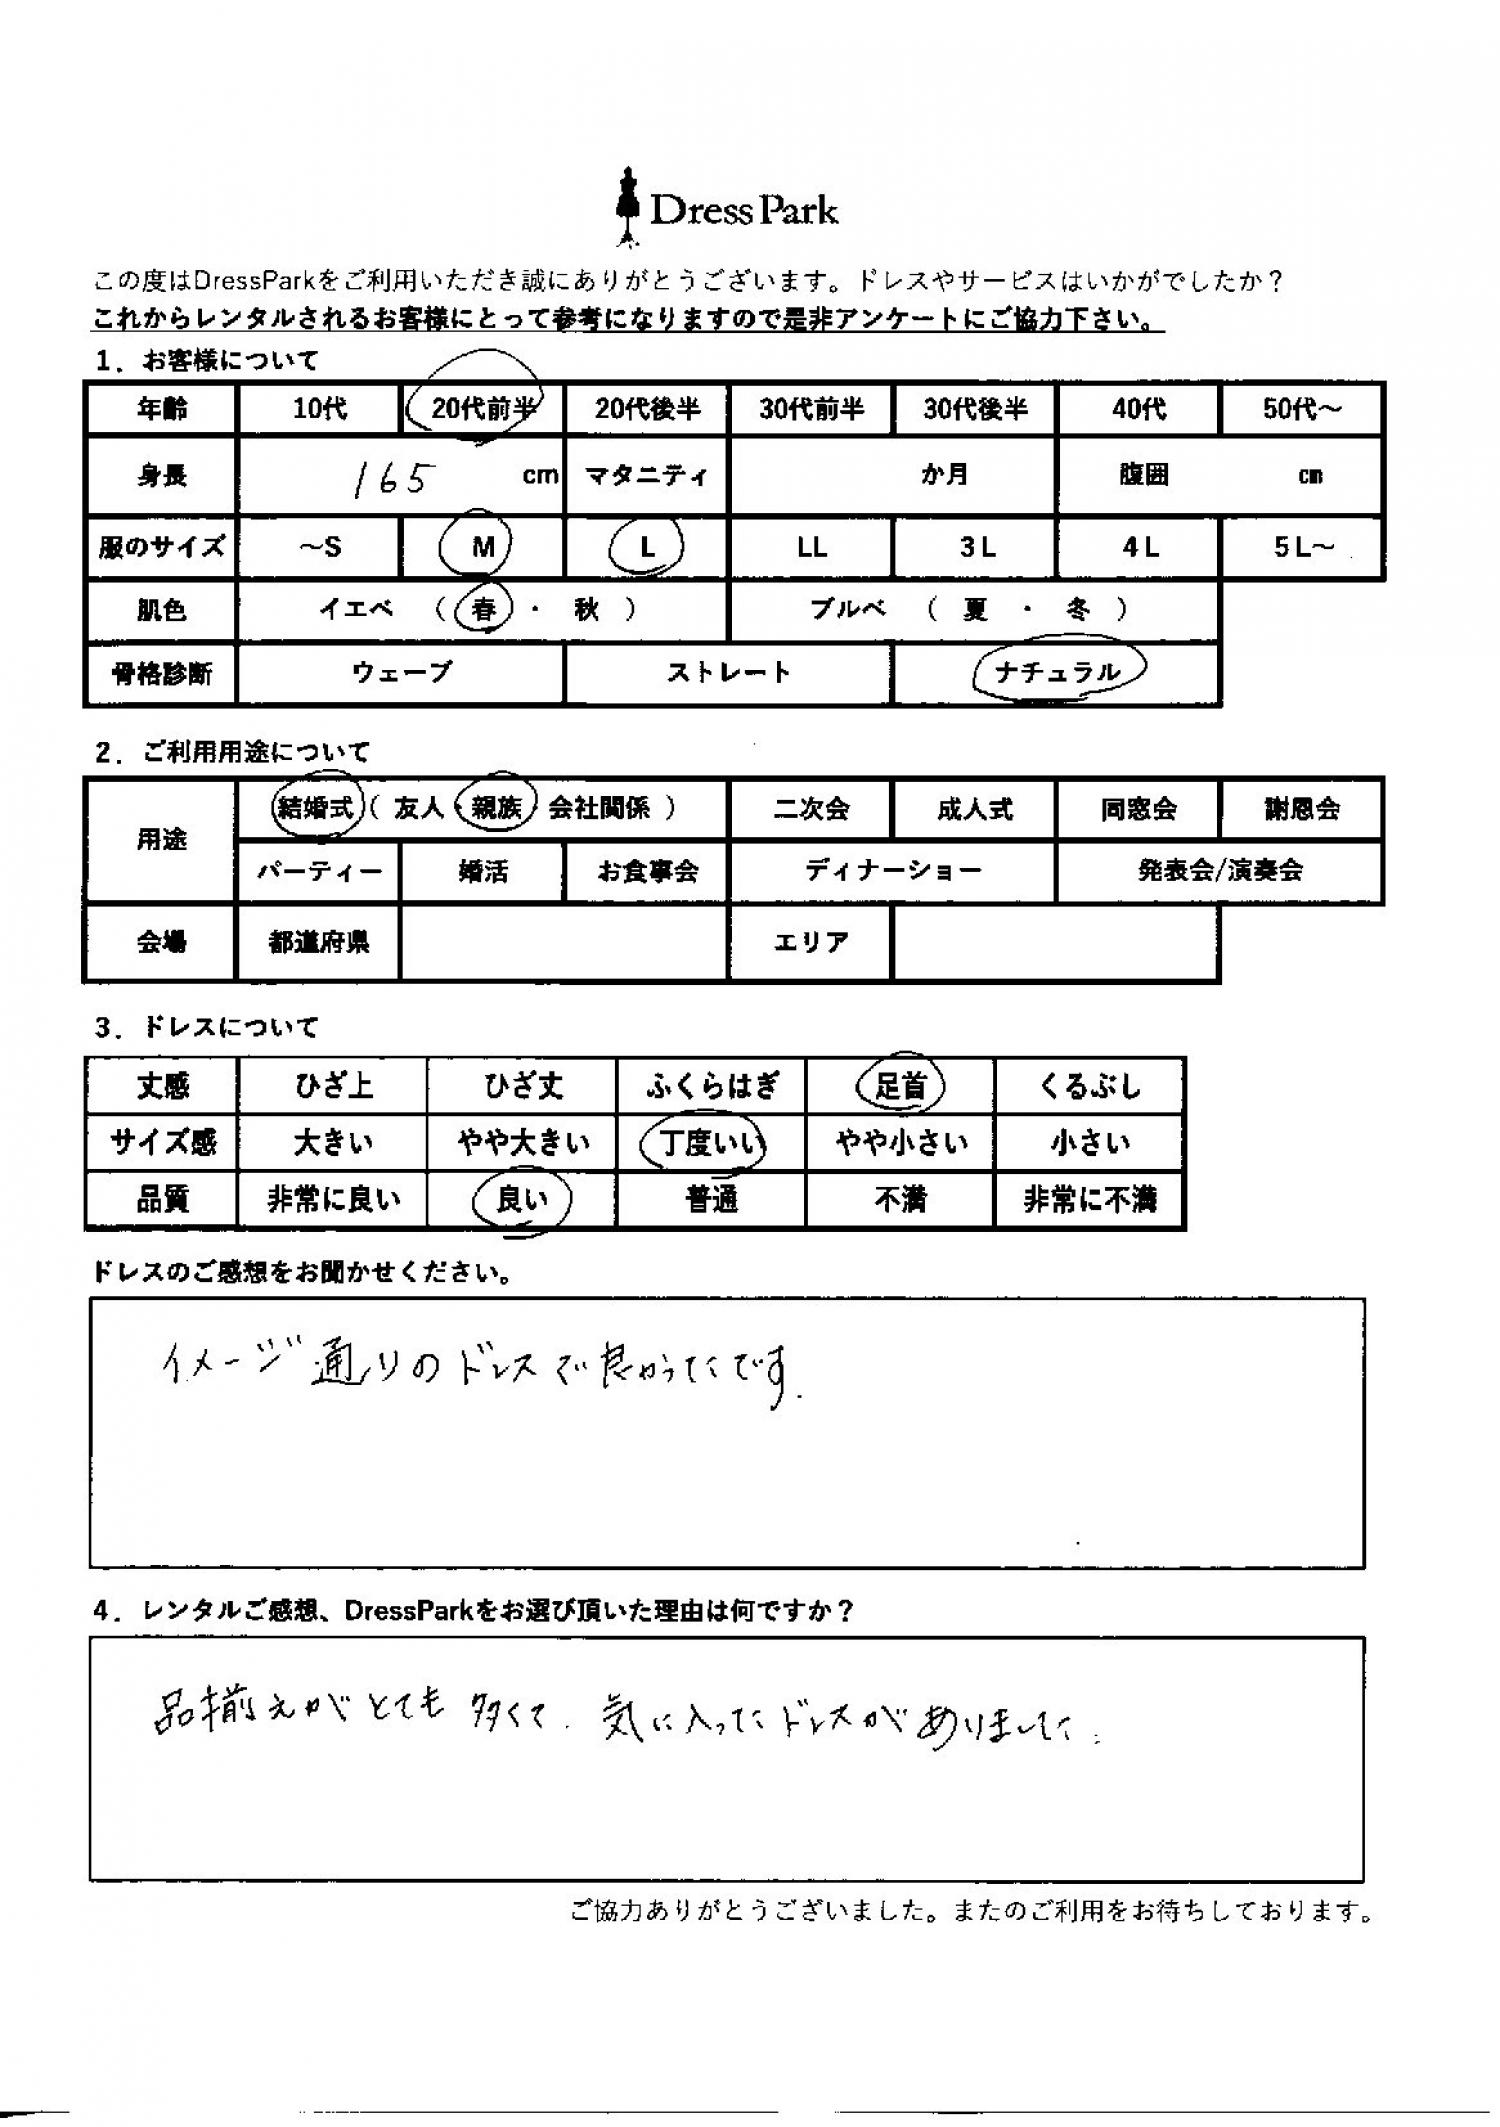 DressPark
この度はDressParkをご利用いただき誠にありがとうございます。ドレスやサービスはいかがでしたか？
これからレンタルされるお客様にとって参考になりますので是非アンケートにご協力下さい。
1．お客様について
年齢 10代 20代前半 20代後半 30代前半 30代後半 40代 50代～
身長 165 cm マタニティ か月 腹囲 cm
服のサイズ ～S M L LL 3L 4L 5L～
肌色 イエベ （ 春 ・ 秋 ） ブルベ （ 夏 ・ 冬 ）
骨格診断 ウェーブ ストレート ナチュラル
2．ご利用用途について
用途 結婚式（ 友人・親族・会社関係 ） 二次会 成人式 同窓会 謝恩会
パーティー 婚活 お食事会 ディナーショー 発表会/演奏会
会場 都道府県 エリア
3．ドレスについて
丈感 ひざ上 ひざ丈 ふくらはぎ 足首 くるぶし
サイズ感 大きい やや大きい 丁度いい やや小さい 小さい
品質 非常に良い 良い 普通 不満 非常に不満
ドレスのご感想をお聞かせください。
イメージ通りのドレスで良かったです.
4．レンタルご感想、DressParkをお選び頂いた理由は何ですか？
品揃えがとても多くて、気に入ったドレスがありました.
ご協力ありがとうございました。またのご利用をお待ちしております。